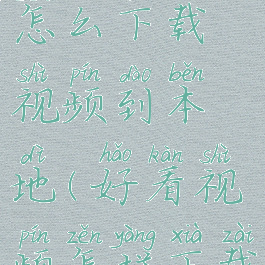 怎么下载
shì pín dào běn
视频到本
dì hǎo kàn shì
地(好看视
pín zěn yàng xià zài
频怎样下载